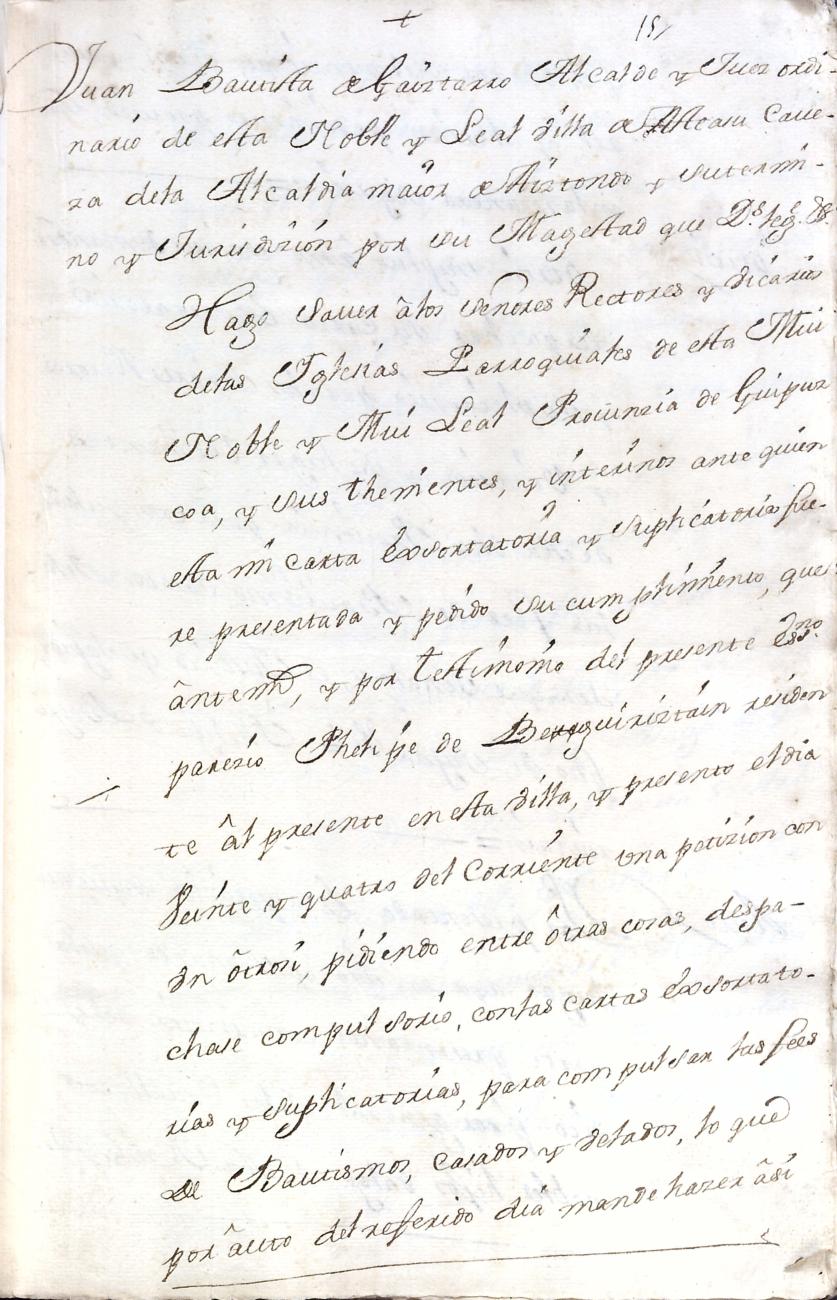 +
15/
Juan Bautista de Gaiztarro Alcalde y Juez ordi-
nario de esta Noble y Leal Villa de Asteasu Cave-
za dela Alcaldia maior de Aiztondo y su termi-
no y Jurisdizión por Su Magestad que D.s
Hago saver â los señores Rectores y vicarios
delas Yglesias Parroquiales de esta Mui
Noble y Mui Leal Provinzia de Guipuz
coa, y sus thenientes, y interinos ante quien
esta mi carta êxsortatoria y suplicatoria fue-
re presentada y pedido su cumplimiento, que
ânte mi, y por testimonio del presente êss.no
parezio Phelipe de Beroguiriztain residen
te âl presente en esta villa, y presento el dia
Veinte y quatro del Corriente una petizion con
un ôtrosi, pidiendo entre ôtras cosas, despa-
chase compulsorio, con las cartas êxsortato-
rias y suplicatorias, para compulsar las fees
de Bautismos, casados y velados, lo que
por âuto del referido dia mande hazer âsi